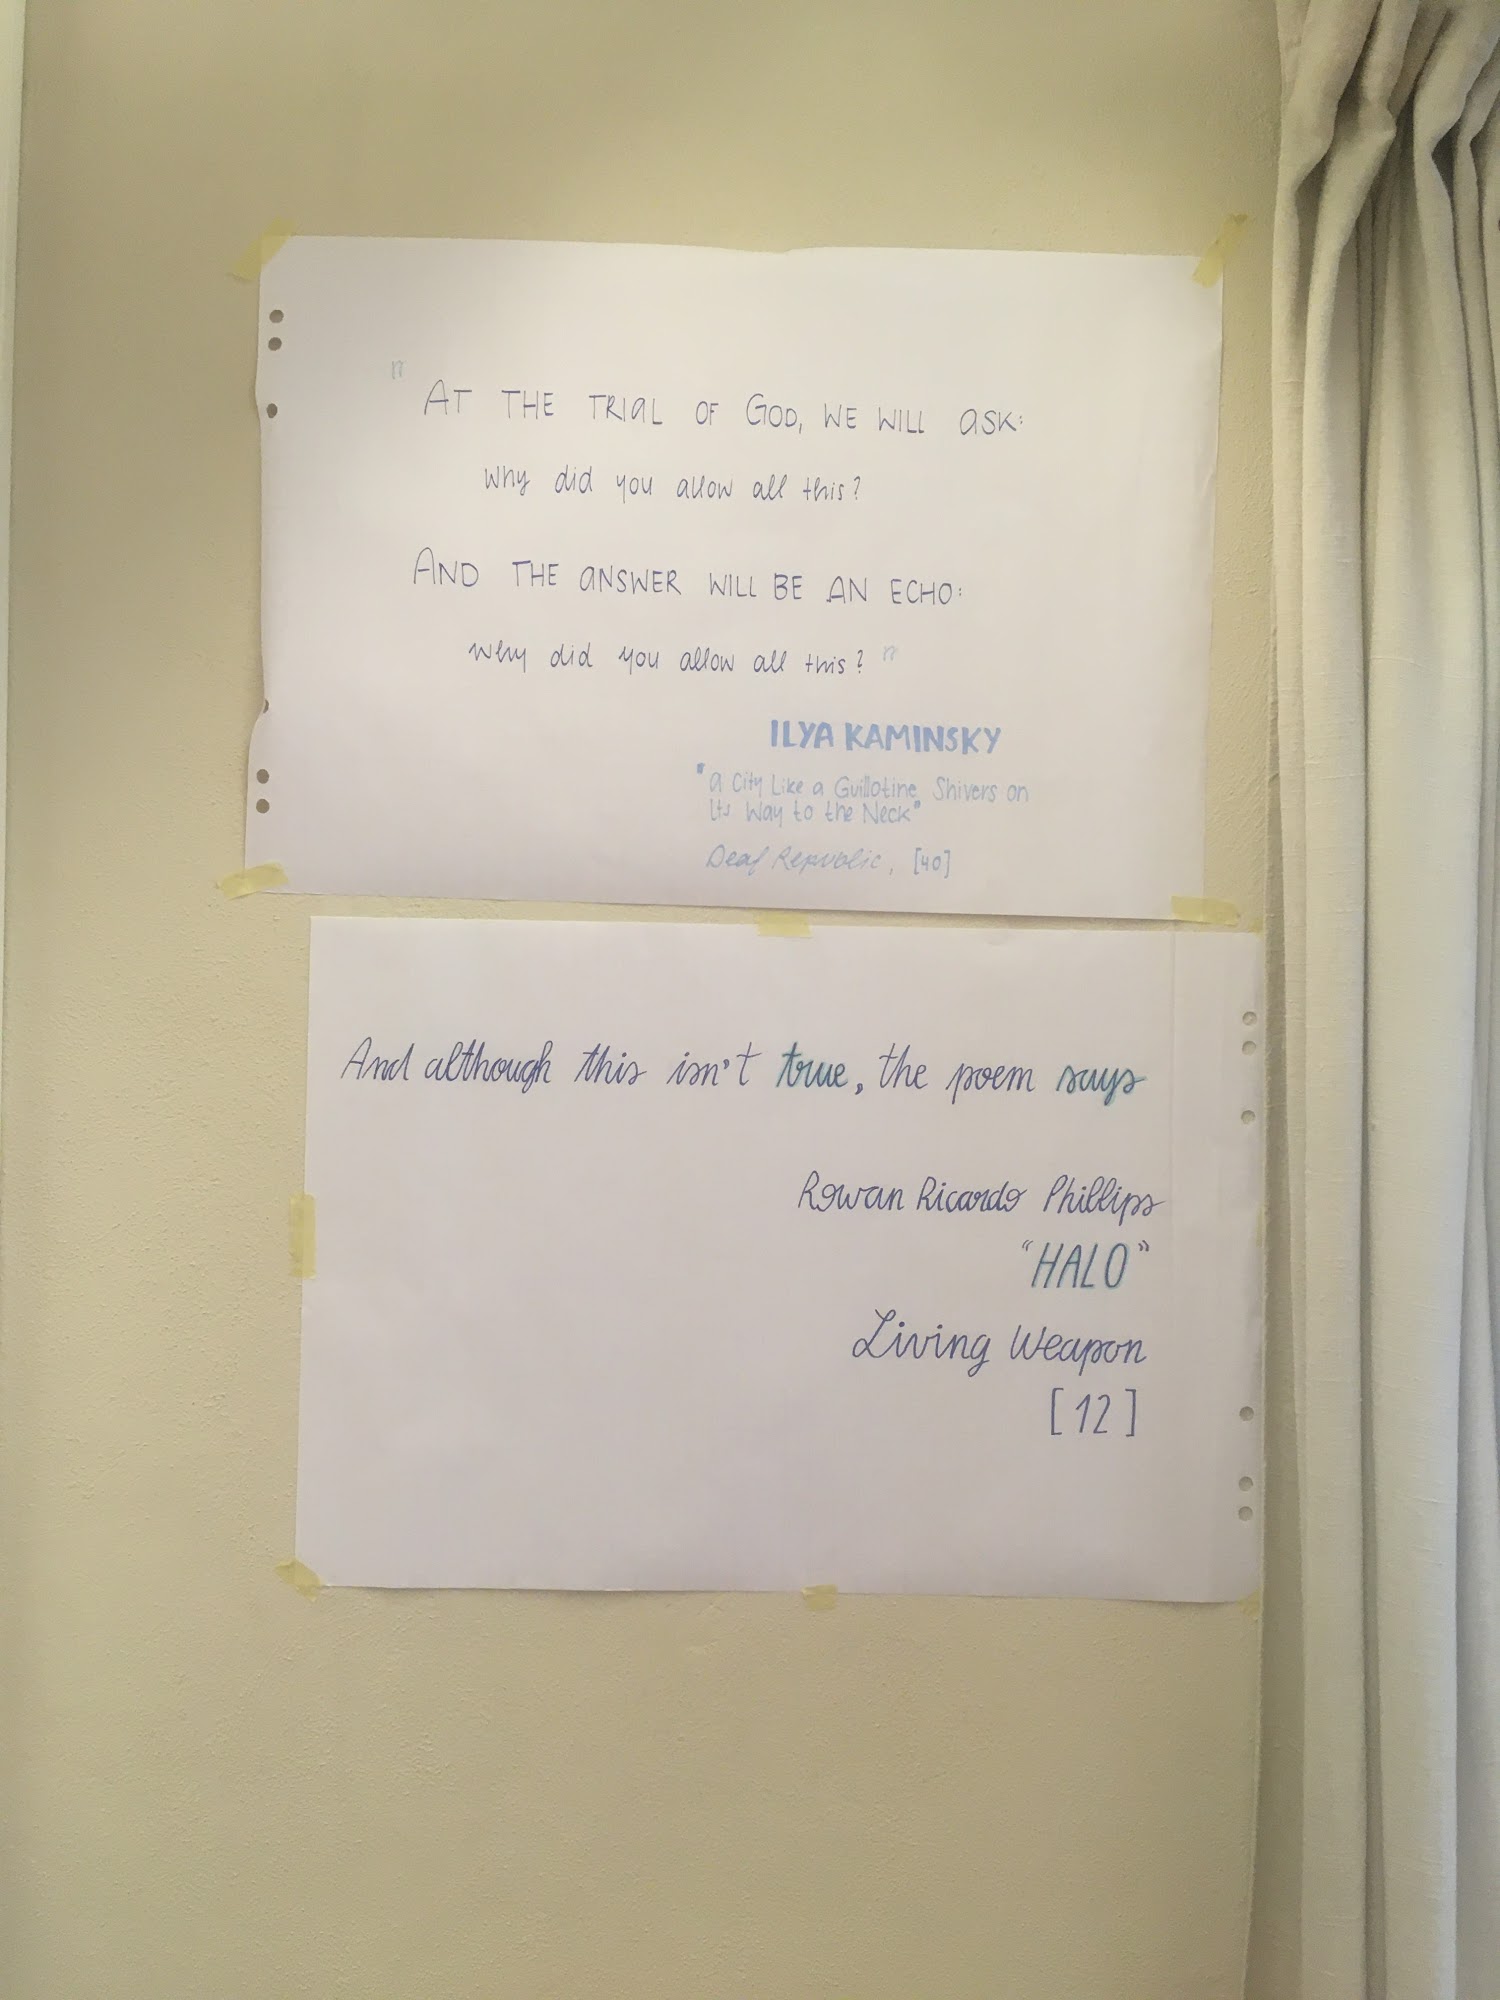 "AT THE TRIAL OF GOD, WE WILL ASK:
why did you allow all this?
AND THE ANSWER WILL BE AN ECHO:
why did you allow all this?"
ILYA KAMINSKY
"A City Like a Guillotine Shivers on
Its Way to the Neck"
Deaf Republic, [40]
And although this isn't true, the poem says
Rowan Ricardo Phillips
"HALO"
Living Weapon
[12]